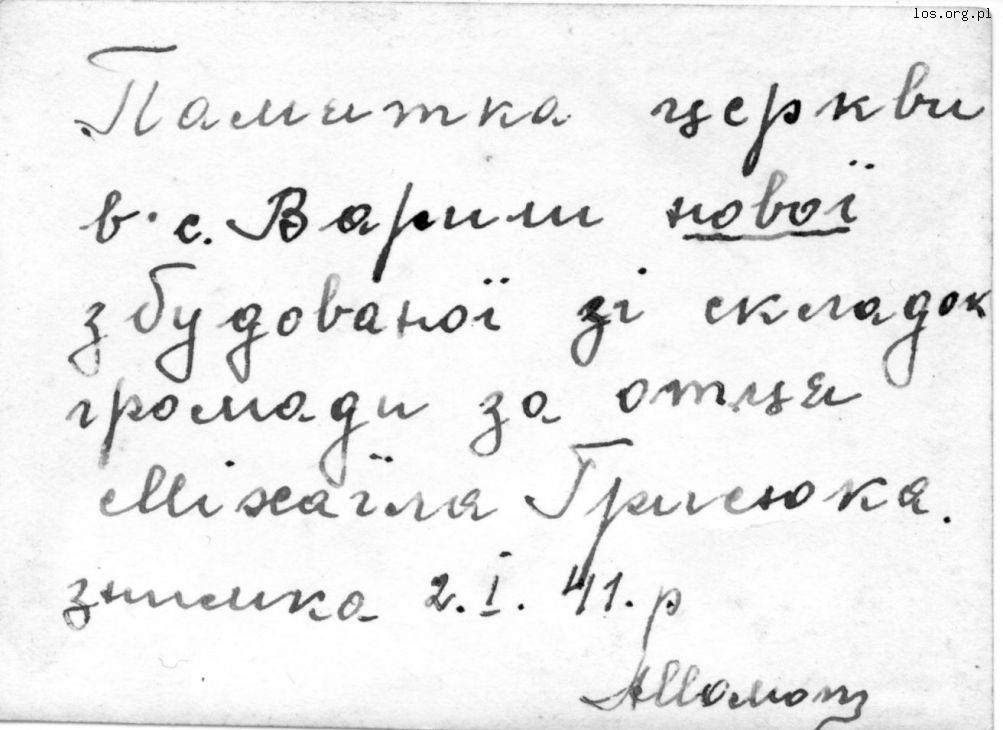 los.org.pl
Памятка церкви
в с. Варили нової
збудованої зі складок
громади за отця
Міхаїла Грисюка.
знимка 2.I.41.р